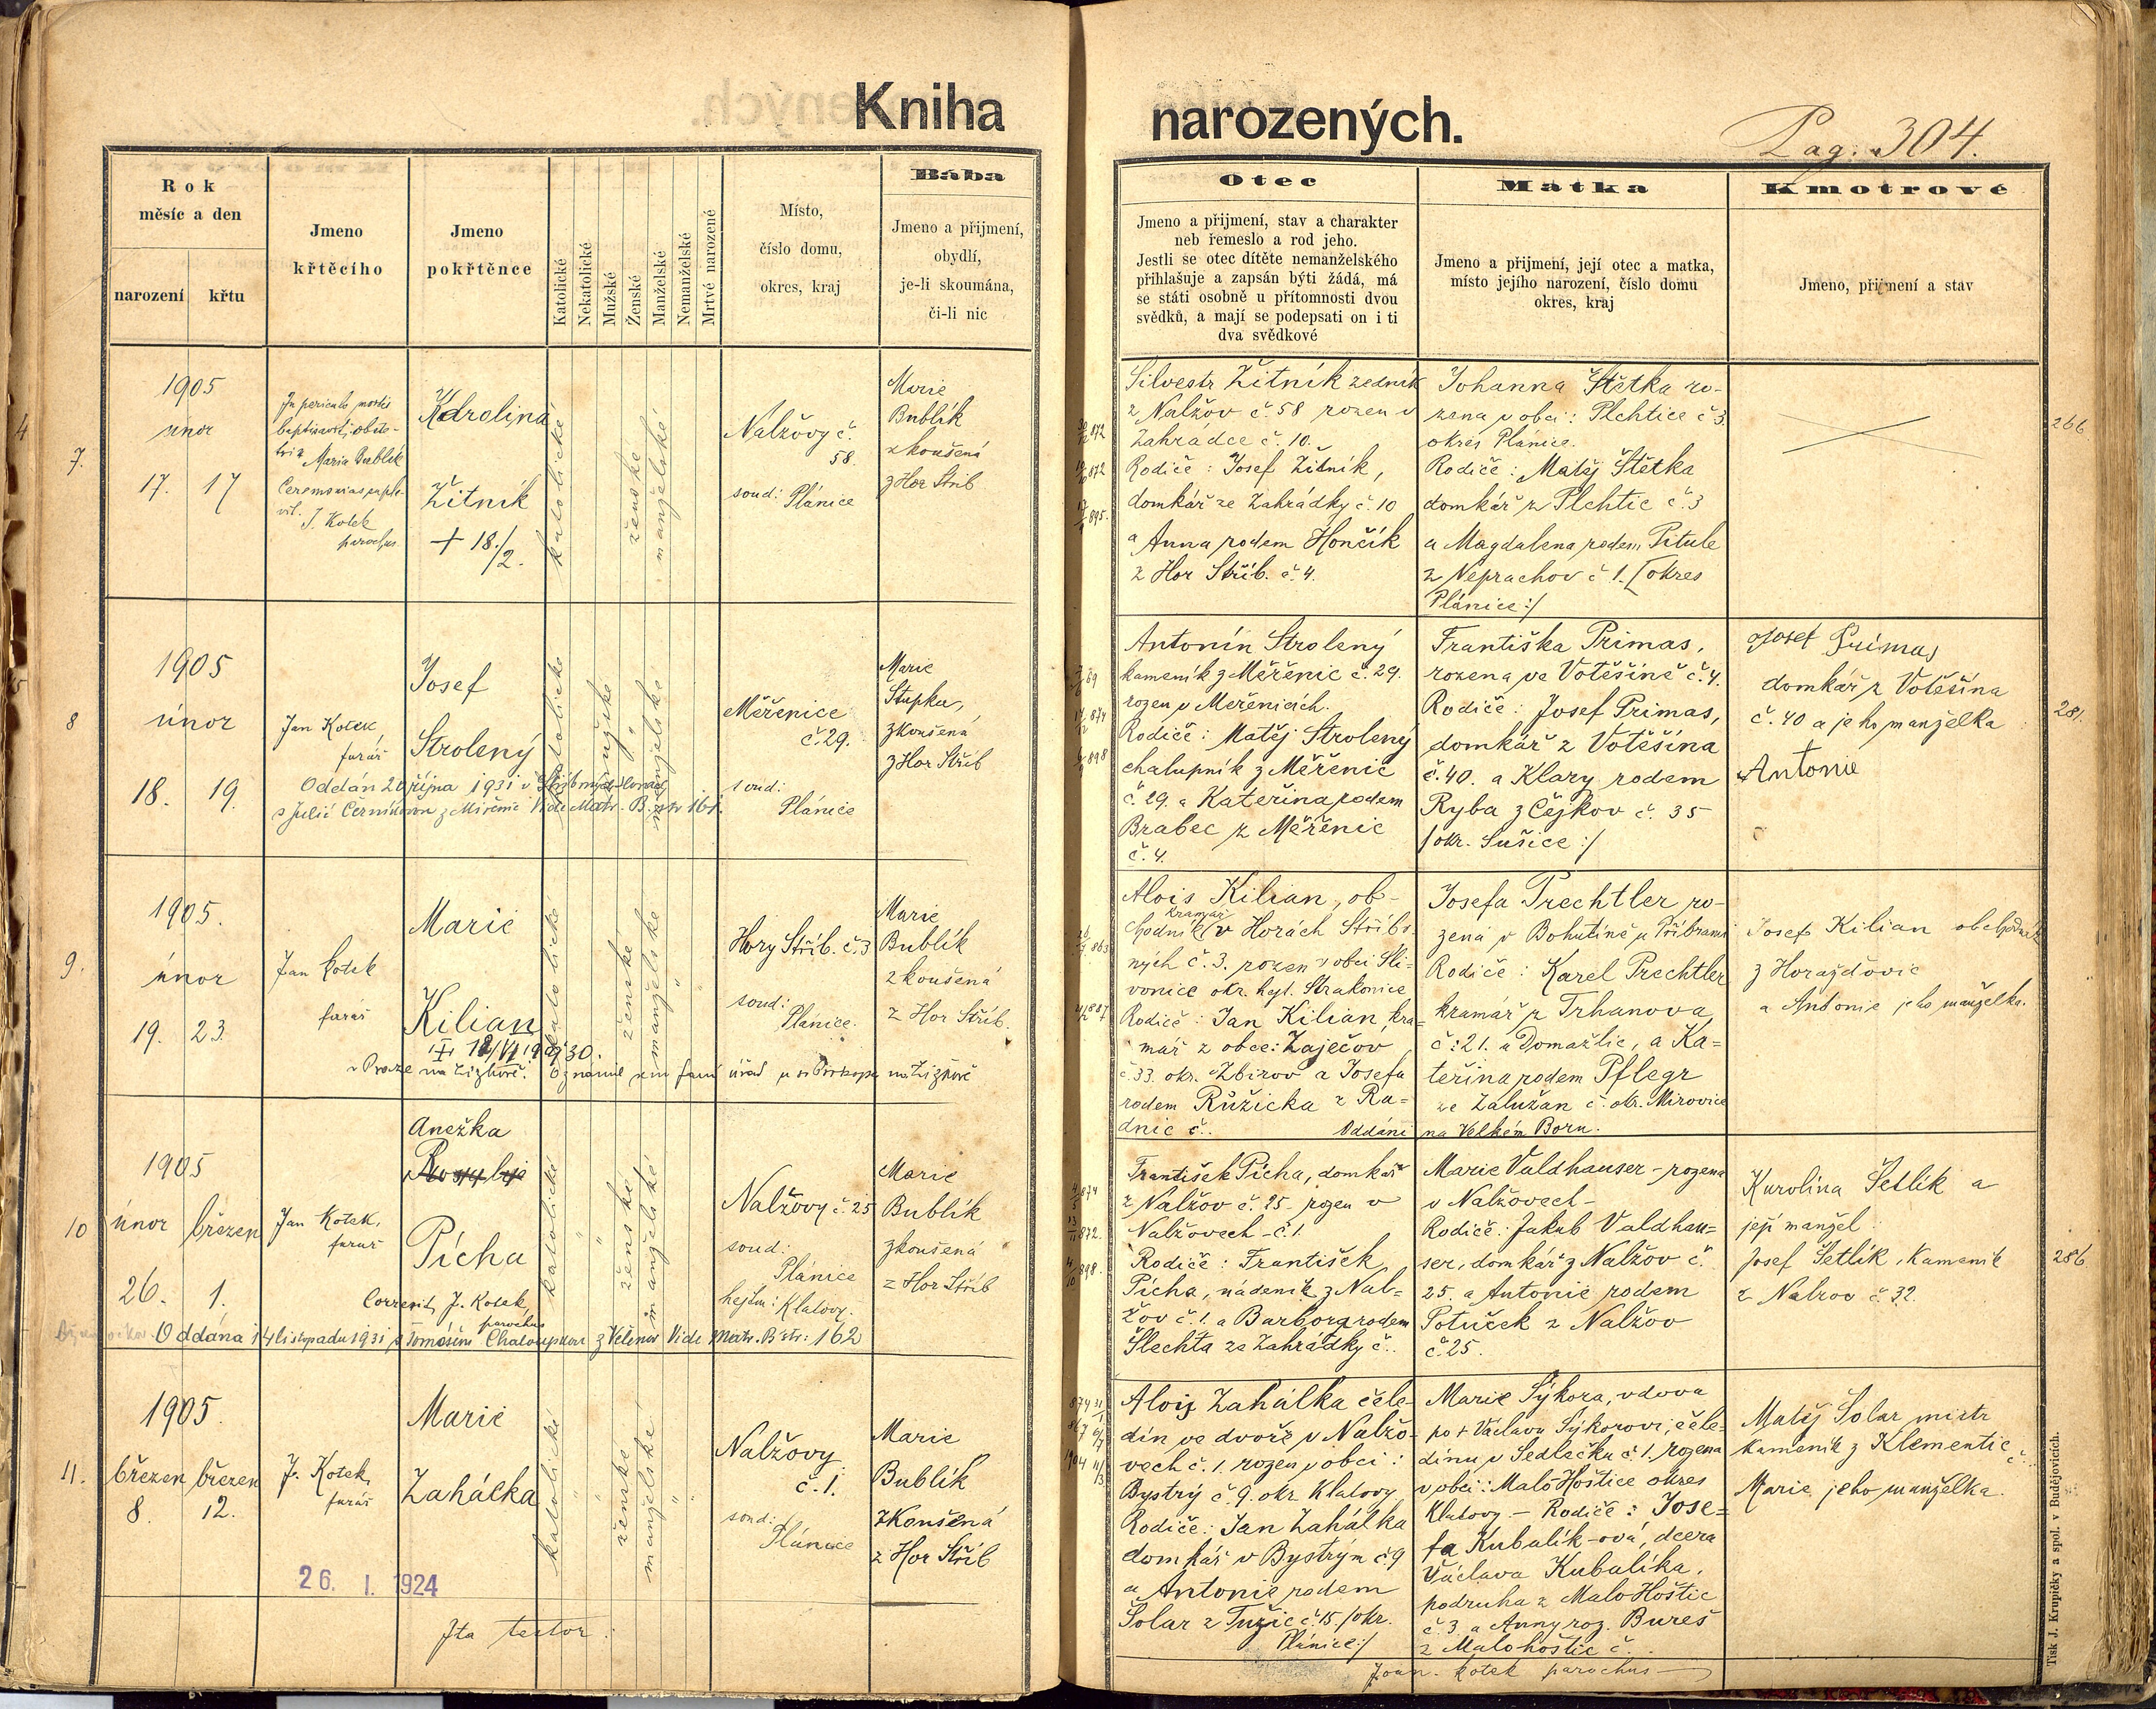 Kniha
narozených.
Pag. 304.
Rok
měsíc a den
narození
křtu
Jmeno
křtěcího
Jmeno
pokřtěnce
Katolické
Nekatolické
Mužské
Ženské
Manželské
Nemanželské
Mrtvé narozené
Místo,
číslo domu,
okres, kraj
Bába
Jmeno a přijmení,
obydlí,
je-li skoumána,
či-li nic
Otec
Jmeno a přijmení, stav a charakter
neb řemeslo a rod jeho.
Jestli se otec dítěte nemanželského
přihlašuje a zapsán býti žádá, má
se státi osobně u přítomnosti dvou
svědků, a mají se podepsati on i ti
dva svědkové
Matka
Jmeno a přijmení, její otec a matka,
místo jejího narození, číslo domu
okres, kraj
Kmotrové
Jmeno, přijmení a stav
7.
1905
únor
17. 17
In periculo mortis
baptisavit obste-
trix Maria Bublík
Ceremonias supple-
vit. J. Kotek
parochus
Karolina
Žitník
+ 18./2.
katolické
ženské
manželské
Nalžovy č.
58.
soud: Plánice
Marie
Bublík
zkoušená
z Hor Stříb
Silvestr Žitník zedník
z Nalžov č. 58 rozen v
Zahrádce č. 10.
Rodiče: Josef Žitník,
domkář ze Zahrádky č. 10
a Anna rodem Hončík
z Hor Stříb. č. 4.
Johanna Štětka ro-
zena v obci: Plchtice č 3.
okres Plánice.
Rodiče: Matěj Štětka
domkář z Plchtic č. 3
a Magdalena rodem Pitule
z Neprachov č 1. [okres
Plánice:/
266
8
1905
únor
18. 19.
Jan Kotek,
farář
Josef
Strolený
katolické
mužské
manželské
Oddán 20 října 1931 v Stříbrných Horách
s Julií Černíkovou z Miřenic Vide Matr. B. str 161.
Měřenice
č. 29.
soud:
Plánice
Marie
Stupka,
zkoušená
z Hor Stříb
Antonín Strolený
kameník z Měřenic č. 29.
rozen v Měřenicích.
Rodiče: Matěj Strolený
chalupník z Měřenic
č. 29. a Kateřina rodem
Brabec z Měřenic
č. 4.
Františka Primas,
rozena ve Votěšíně č. 4.
Rodiče: Josef Primas,
domkář z Votěšína
č. 40. a Klary rodem
Ryba z Čejkov č. 35
/okr. Sušice:/
Josef Primas
domkář z Votěšína
č. 40 a jeho manželka
Antonie
281.
9.
1905.
únor
19. 23.
Jan Kotek
farář
Marie
Kilian
katolické
ženské
manželské
v Praze na Žižkově. Oznámil sem farní úřad u sv Prokopa na Žižkově
Hory Stříb. č. 3
soud:
Plánice.
Marie
Bublík
zkoušená
z Hor Stříb.
Alois Kilian, ob-
kramář
chodník v Horách Stříbr-
ných č. 3. rozen v obci Sli-
vonice okr. hejt. Strakonice
Rodiče: Jan Kilian, kra-
mář z obce: Zaječov
č. 33. okr. Zbirov a Josefa
rodem Růžicka z Ra-
dnic č..
Oddáni na Velkém Boru.
Josefa Prechtler ro-
zená v Bohutíně u Příbrami
Rodiče: Karel Prechtler
kramář z Trhanova
č: 21. u Domažlic, a Ka-
teřina rodem Pflegr
ze Zalužan č. okr. Mirovice
Josef Kilian obchodník
z Horažďovic
a Antonie jeho manželka.
10
1905
únor březen
26. 1.
Jan Kotek,
farář
Anežka
Pícha
Correxit J. Kotek,
parochus
katolické
ženské
manželské
Oddána 14 listopadu 1931 s Tomášem Chaloupkou z Velenov Vide Matr. B str: 162
Nalžovy č. 25
soud:
Plánice
hejtm: Klatovy.
Marie
Bublík
zkoušená
z Hor Stříb
František Pícha, domkář
z Nalžov č. 25 - rozen v
Nalžovech - č. 1.
Rodiče: František
Pícha, nádeník z Nal-
žov č. 1. a Barbora rodem
Šlechta ze Zahrádky č..
Marie Valdhauser - rozena
v Nalžovech -
Rodiče: Jakub Valdhau-
ser, domkář z Nalžov č.
25. a Antonie rodem
Potůček z Nalžov
č. 25.
Karolina Šetlík a
její manžel
Josef Šetlík, Kameník
z Nalžov č. 32.
286
11.
1905.
březen březen
8. 12.
J. Kotek,
farář
Marie
Zahálka
katolické
ženské
manželské
Nalžovy
č. 1.
soud:
Plánice
Marie
Bublík
zkoušená
z Hor Stříb
Alois Zahálka čele-
dín ve dvoře v Nalžo-
vech č. 1. rozen v obci:
Bystrý č. 9. okr. Klatovy
Rodiče: Jan Zahálka
domkář v Bystrým č 9
a Antonie rodem
Šolar z Tužic č. 15 /okr.
Plánice:/
Marie Sýkora, vdova
po + Václavu Sýkorovi, čele-
dínu v Sedlečku č. 1. rozena
v obci: Malo-Hoštice okres
Klatovy - Rodiče: Jose-
fa Kubalík-ová, dcera
Václava Kubalíka,
podruha z MaloHoštic
č. 3 a Anny roz. Bureš
z Malohoštic č.
Matěj Šolar mistr
kameník z Klementic č..
Marie jeho manželka.
26. I. 1924
Ita testor:
Joan. Kotek parochus
Tisk J. Krupičky a spol. v Budějovicích.